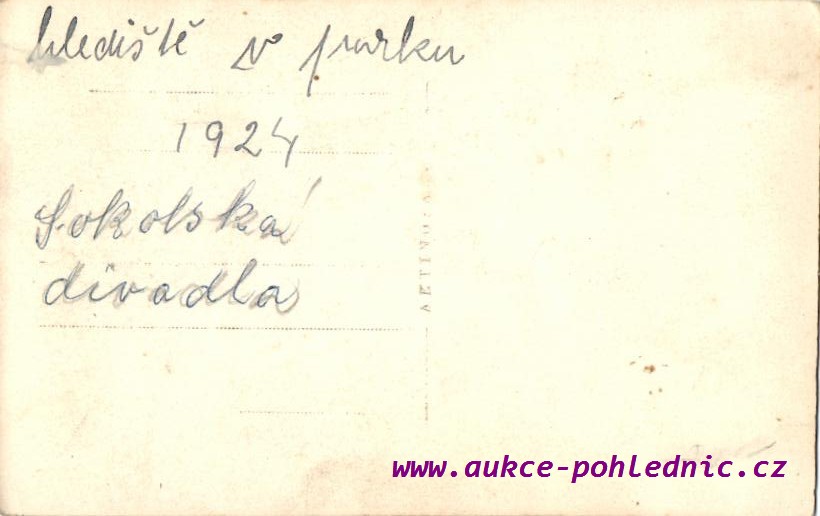 hlediště v parku
1924
Sokolská
divadla
www.aukce-pohlednic.cz